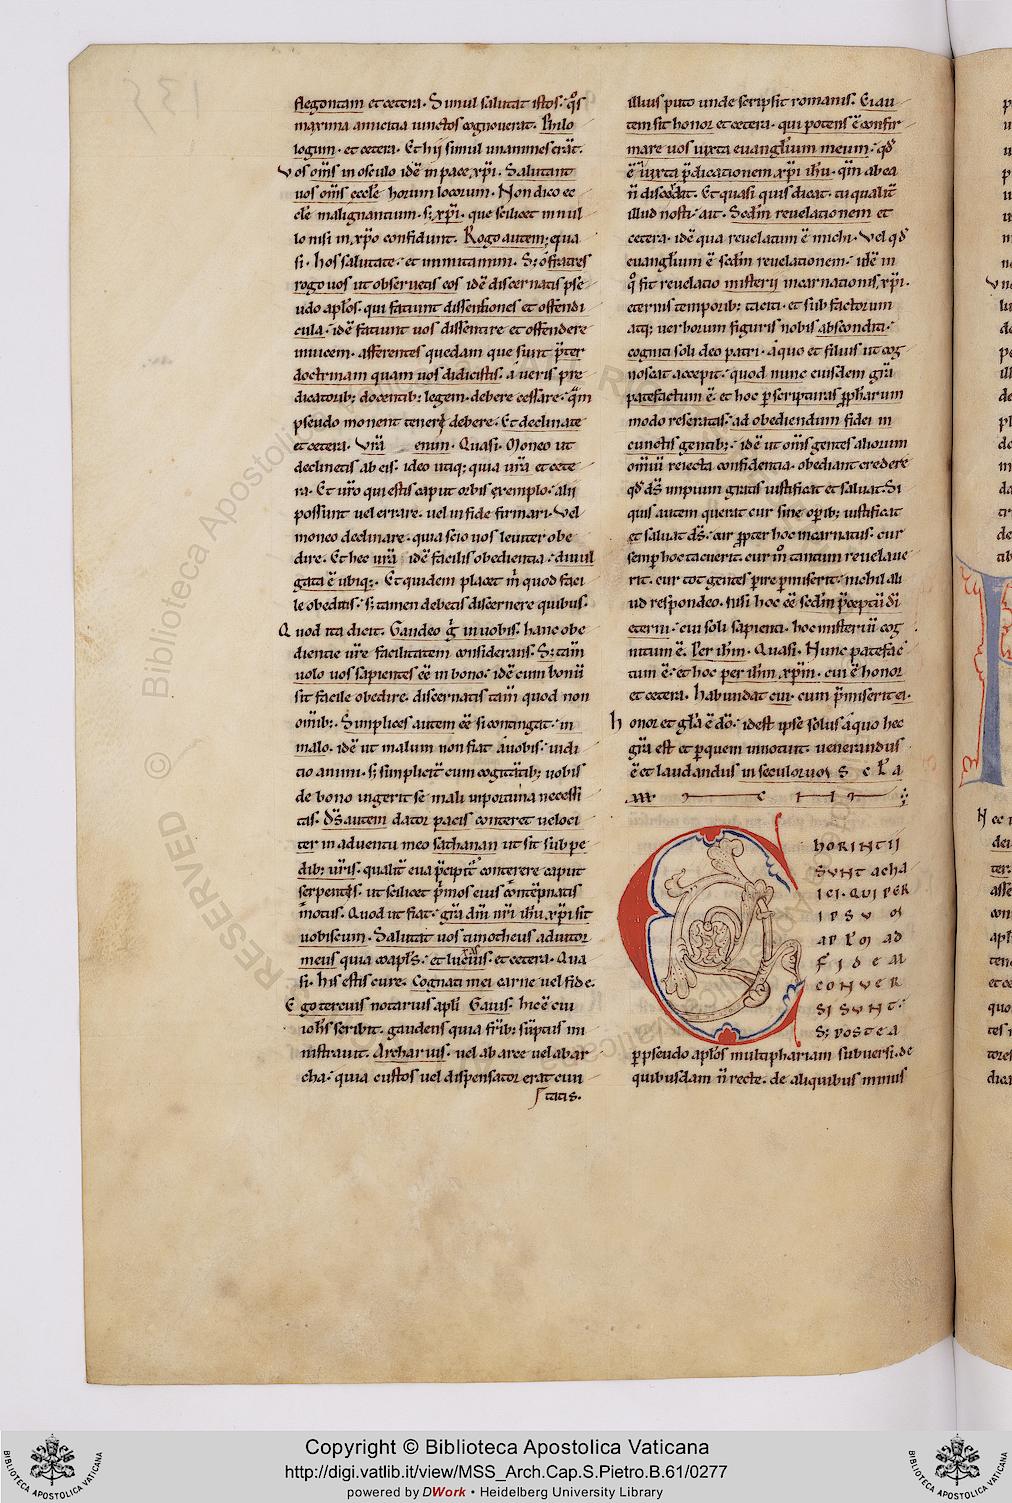 flegontam et cetera. Simul salutat istos. q̊s
maxima amicitia iunctos cognouerat. Philo
logum. et cetera. Et hij simul unanimes erāt.
Vos om̅s in osculo idē in pace xp̅i. Salutant
uos om̅s eccl̅e horum locorum. Non dico ec
cl̅e malignantium. s; xp̅i. que scilicet in nul
lo nisi in xp̅o confidunt. Rogo autem; qua
si. hos salutate. et imitamini. S; o fratres
rogo uos ut obseruetis eos idē discernatis pse
udo ap̅los. qui faciunt dissentiones et offendi
cula. idē faciunt uos dissentire et offendere
inuicem. afferentes quedam que sunt p̅ter
doctrinam quam uos didicistis. a ueris pre
dicatorib; docentib; legem debere cessare. qm̅
pseudo monent teneri debere. Et declinate
et cetera. Vr̅a enim. Quasi. Moneo ut
declinetis ab eis. ideo utiq; quia ur̅a et cete
ra. Et uero qui estis caput orbis exemplo. alii
possunt uel errare. uel in fide firmari. Vel
moneo declinare. quia scio uos leuiter obe
dire. Et hec ur̅a idē facilis obedientia. diuul
gata ē ubiq;. Et quidem placet m̊ quod faci
le obeditis. s; tamen debetis discernere quibus.
Quod ita dicit. Gaudeo g̊ in uobis. hanc obe
dientie ur̅e facilitatem considerans. S; tam̅
uolo uos sapientes ēē in bono. idē cum bonū
sit facile obedire. discernatis tam̅ quod non
omīb;. Simplices autem ēē si contingat. in
malo. idē ut malum non fiat a uobis. iudi
tio animi. s; simplicit̅ cum cogitātib; uobis
de bono ingerit se mali inportuna necessi
tas. D̅s autem dator pacis conteret ueloci
ter in aduentu meo sathanan ut sit sub pe
dib; ur̅is. qualit̅ eua p̅cipit̅ conterere caput
serpentis. ut scilicet p̅mos eius cōtēpnatis
motus. Quod ut fiat. gr̅a dn̅i nr̅i ih̅u xp̅i sit
uobiscum. Salutat uos timotheus adiutor
meus quia coap̅ls. et lucius. et cetera. Qua
si. his estis cure. Cognati mei carne uel fide.
Ego tercius notarius ap̅li. Gaius. hic ē cui
ioh̅s scribit. gaudens quia fr̅ib; sūptus mi
nistrauit. Archarius. uel ab arce uel ab ar
cha. quia custos uel dispensator erat ciui
tatis.
illius puto unde scripsit romanis. Ei au
tem sit honor et cetera. qui potens ē confir
mare uos iuxta euangl̅ium meum. qd̅
ē iuxta p̅dicationem xp̅i ih̅u. qm̅ ab ea
n̅ discordat. Et quasi quis dicat. tu qualit̅
illud nosti. ait. Scd̅m reuelationem et
cetera. idē qua reuelatum ē michi. Vel qd̅
euangl̅ium ē scd̅m reuelationem. idē in
q̊ fit reuelatio misterij incarnationis xp̅i.
eternis temporib; taciti. et sub factorum
atq; uerborum figuris nobis absconditi.
cogniti soli deo patri. a quo et filius ut cog
noscat accepit. quod nunc eiusdem gr̅a
patefactum ē. et hoc p̱ scripturas p̱phetarum
modo reseratas. ad obediendum fidei in
cunctis gentib;. idē ut om̅s gentes aliorum
om̅iū reiecta confidentia. obediant credere
qd̅ d̅s impium gratis iustificat et saluat. Si
quis autem querat cur sine op̱ib; iustificat
et saluat d̅s. cur p̱pter hoc incarnatus. cur
semp̱ hoc tacuerit. cur m̊ tantum reuelaue
rit. cur tot gentes p̱ire p̱miserit. nichil ali
ud respondeo. nisi hoc ēē scd̅m p̅ceptū di̅
eterni. cui soli sapienti. hoc misteriū cog
nitum ē. Per ih̅m. Quasi. Nunc patefac
tum ē. et hoc per ih̅m xp̅m. cui ē honor
et cetera. habundat cui. cum p̅miserit ei.
honor et gl̅a ē d̅o. idest ipse solus a quo hec
gr̅a est et p̱ quem innotuit. uenerandus
ē et laudandus in seculorum s e cl̅a
am
CHORINTII
SUNT acha
ICI. QUI PER
IPSU M
AP̅L̅M AD
FIDEM
CONVER
SI SUNT.
S; POSTEA
p̱ pseudo ap̅los multiphariam subuersi. de
quibusdam n̅ recte. de aliquibus minus
Copyright © Biblioteca Apostolica Vaticana
http://digi.vatlib.it/view/MSS_Arch.Cap.S.Pietro.B.61/0277
powered by DWork • Heidelberg University Library